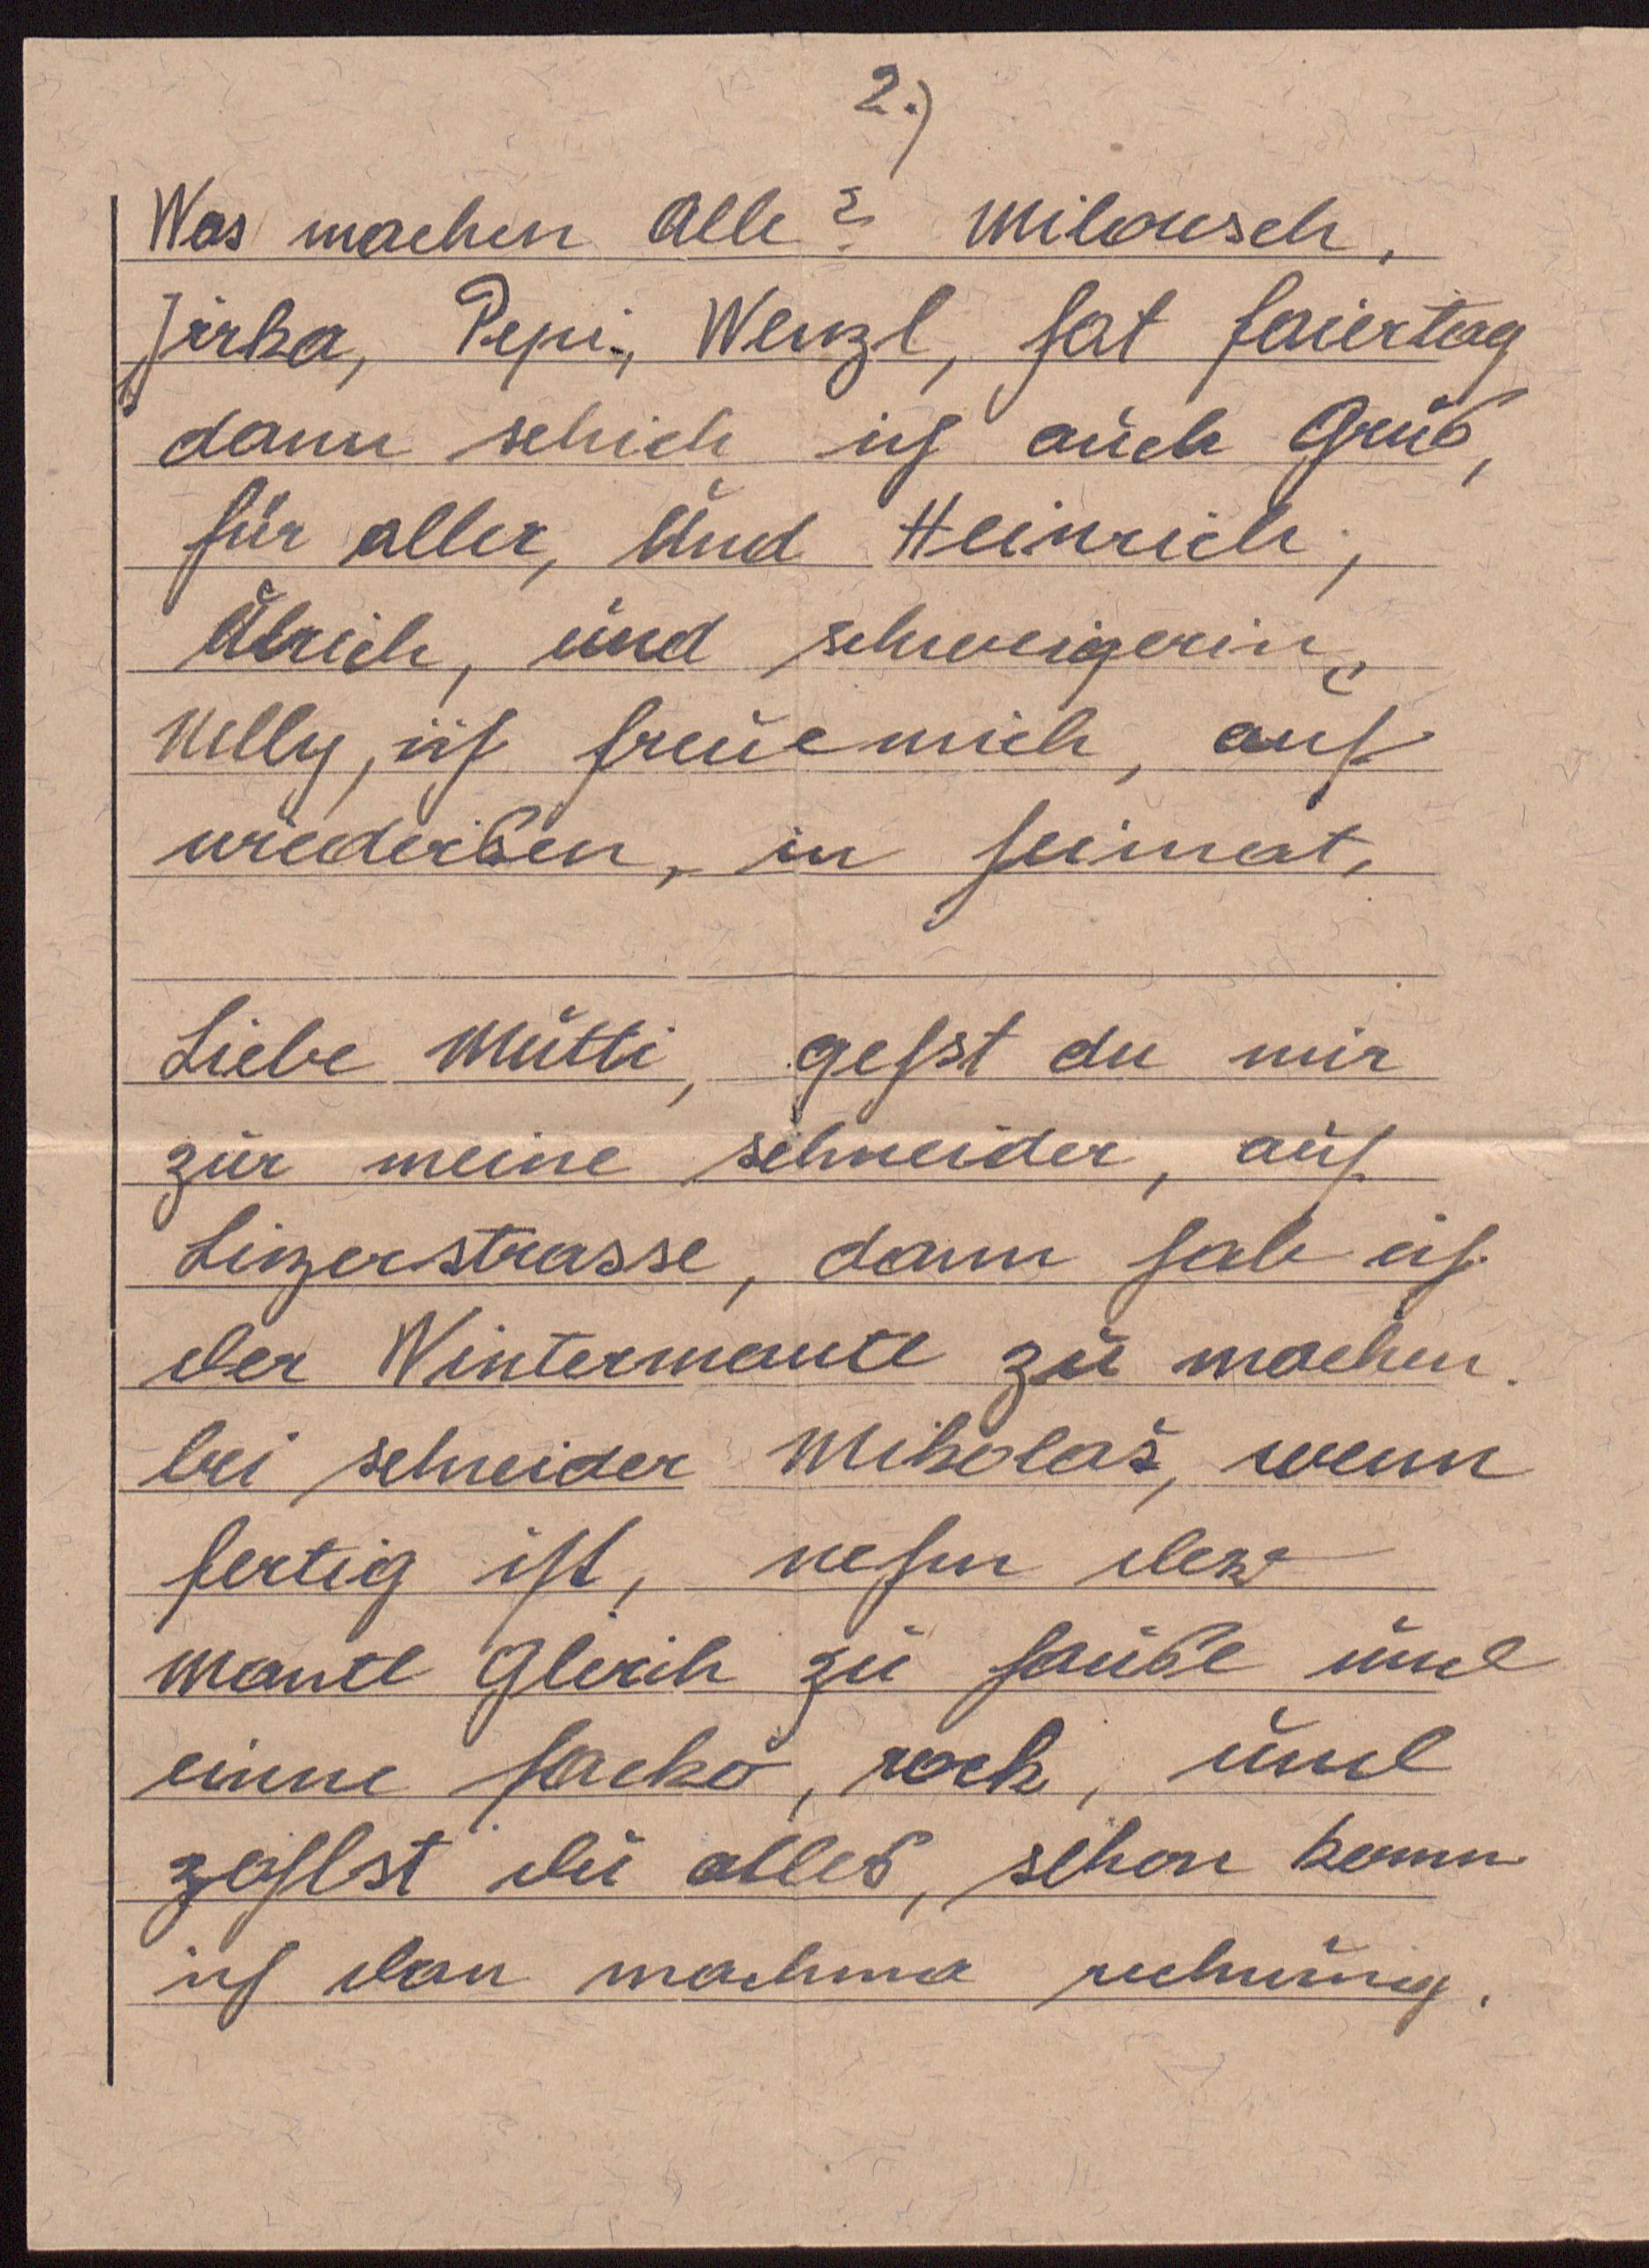 2.)
Was machen Alle? Milousch,
Jirka, Pepi, Wenzl, hat faiertag
dann schick ich auch Gruß,
für aller, Und Heinrich,
Ulrich, und schweigerin,
Nelly, ich freue mich, auf
wiederißen, in heimat,
Liebe Mutti, gehst du mir
zur meine schneider, auf
Linzerstrasse, dann hab ich
der Wintermantl zu machen.
bei schneider Mikolaš, wenn
fertig ist, nehm der
Mantl Gleich zu hauße und
einne sacko, rock, und
zahlst du alles, schon komm
ich dan machma rechnung.